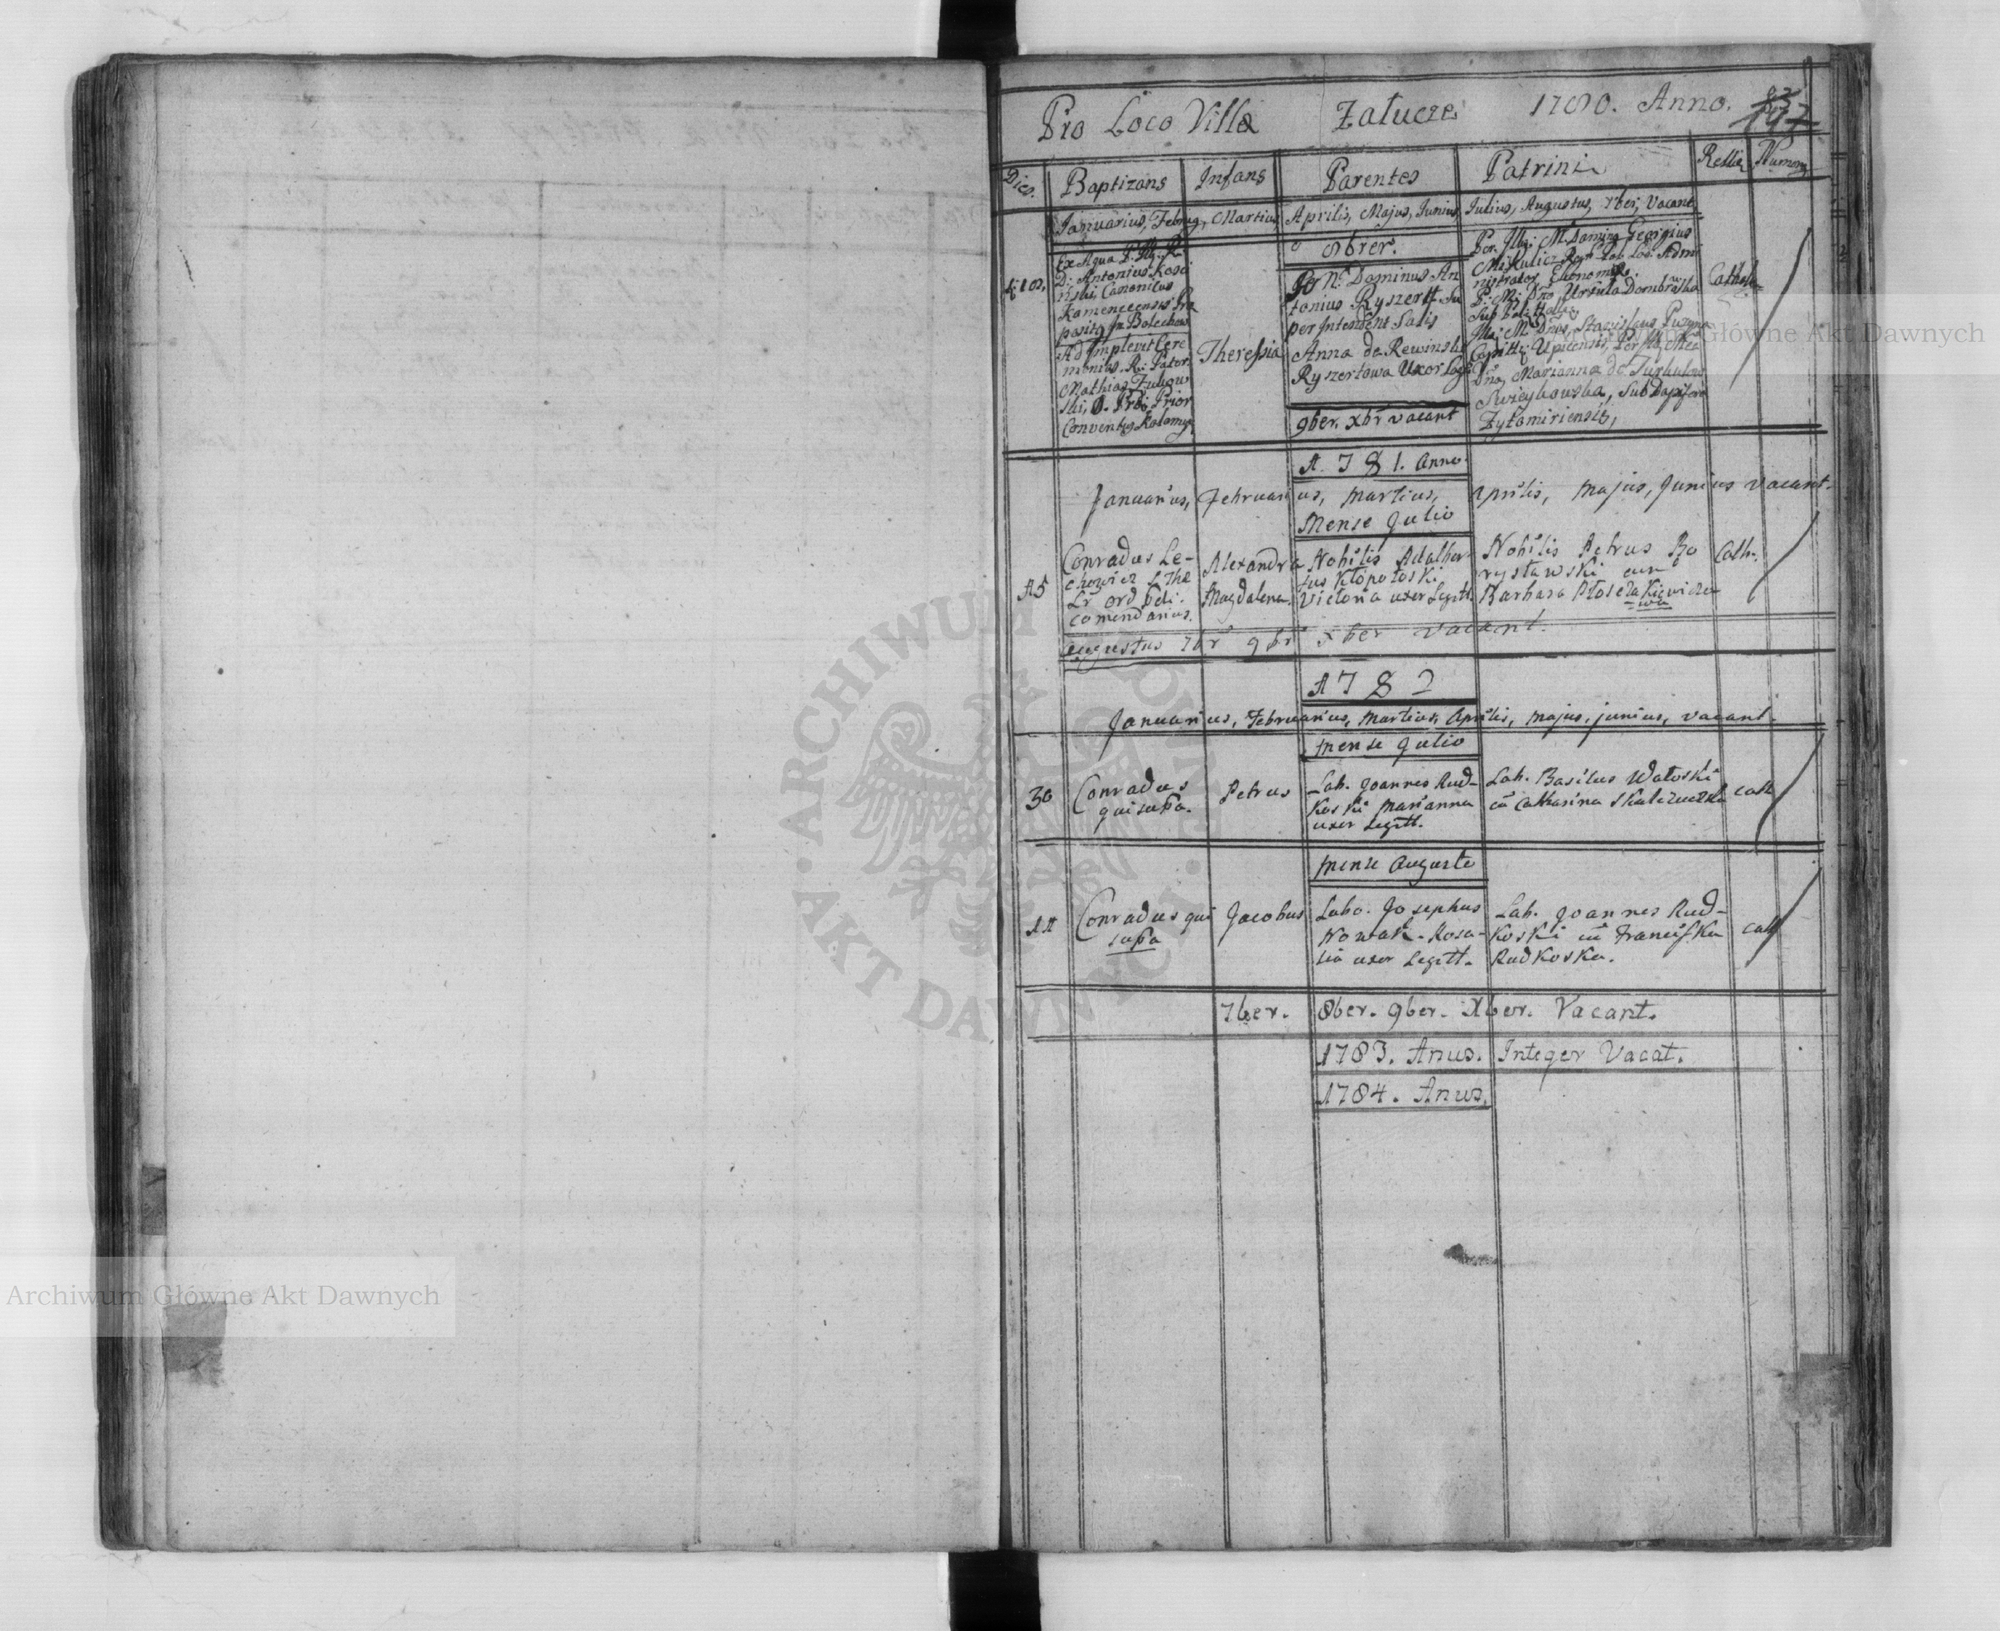 Pro Loco Villa Załucze 1780. Anno.
Dies. Baptizans Infans Parentes Patrini Rellia Numerus
Januarius, Februa, Martius, Aprilis, Majus, Junius, Julius, Augustus, 7ber, Vacant
8brer.
Ex Aqua P. Ill. R.
D. Antonius Kosci
nski Canonicus
Kamenecensis Pra
posito In Bolechow
Ad Implevit Cere
monias R. Pater
Mathias Zukow
ski, O. Prdi Prior
Conventus Kolomy
Theressia
Dominus An
tonius Ryszertt Su
per Intendent Salis
Anna de Rewinski
Ryszertowa Uxor Leg
9ber. Xbr vacant
Per. Ill. M. Domino Georgius
Mikulicz
nistrator Ekonomi
Ursula Dombrowska
Stanislaus Puzyna
Upicensis, Per
Dna, Marianna de Turkułow
Swieykowska, Sub Dapifero
Zytomiriensis,
Cathol
A. 781. Anno.
Januarius, Februarius, Martius, Aprilis, Majus, Junius vacant.
Mense Julio
15
Conradus Le-
chowicz
Lr ord Pdi.
comendarius.
Alexandra
Magdalena.
Nobilis Adalber
tus Kłopotoski
Victoria uxor Legitt.
Nobilis Petrus Bo
rysławski cum
Barbara
Cath.
Augustus 7br 9br xber vacant.
A 782
Januarius, Februarius, Martius, Aprilis, majus, junius, vacant.
Mense Julio
30
Conradus
qui supa.
Petrus
Lab. Joannes Rud-
koski Marianna
uxor Legitt.
Lab. Basilus Watoski
cu Catharina
cath
Mense Augusto
11
Conradus qui
supa
Jacobus
Labo. Josephus
Nowak. Rosa-
lia uxor Legitt.
Lab. Joannes Rud-
koski cu Franciska
Rudkoska.
cath
7ber. 8ber. 9ber. Xber. Vacant.
1783. Anus. Integer Vacat.
1784. Anus.
Archiwum Główne Akt Dawnych
Archiwum Główne Akt Dawnych
ARCHIWUM GŁÓWNE
AKT DAWNYCH